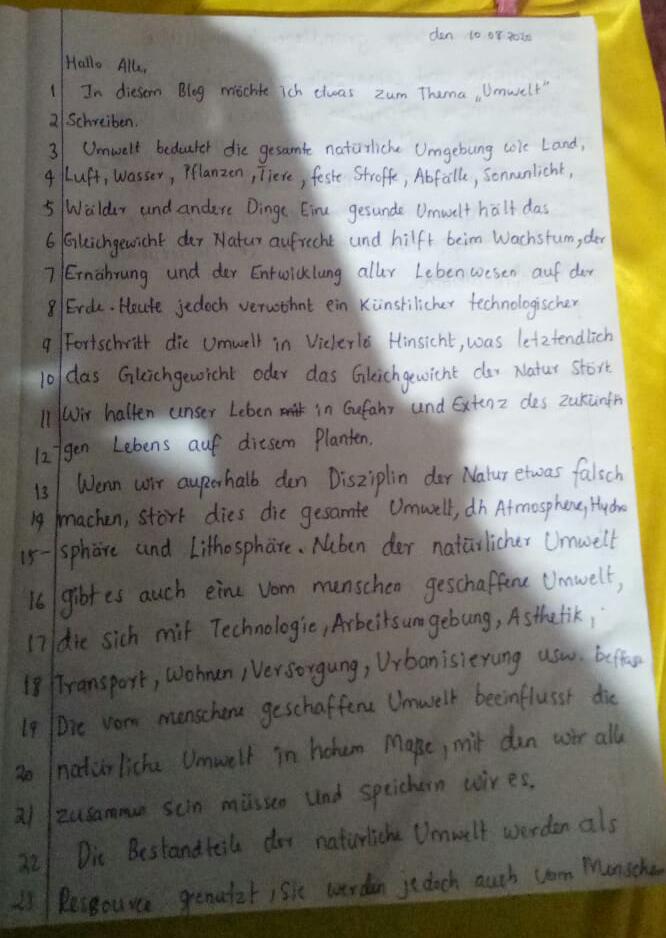 den 10.08.2020
Hallo Alle,
1 In diesem Blog möchte ich etwas zum Thema „Umwelt"
2 Schreiben.
3 Umwelt bedeutet die gesamte natürliche Umgebung wie Land,
4 Luft, Wasser, Pflanzen, Tiere, feste Stroffe, Abfälle, Sonnenlicht,
5 Wälder und andere Dinge Eine gesunde Umwelt hält das
6 Gleichgewicht der Natur aufrecht und hilft beim Wachstum, der
7 Ernährung und der Entwicklung aller Lebenwesen auf der
8 Erde. Heute jedoch verwöhnt ein Künstilicher technologischer
9 Fortschritt die Umwelt in Hinsicht, was letztendlich
10 das Gleichgewicht oder das Gleichgewicht der Natur Stört
11 Wir halten unser Leben in Gefahr und Extenz des Zukünfti
12 -gen Lebens auf diesem Planten.
13 Wenn wir außerhalb den Disziplin der Natur etwas falsch
14 machen, stört dies die gesamte Umwelt, dh Atmosphere, Hydro
15 -sphäre und Lithosphäre. Neben der natürlicher Umwelt
16 gibt es auch eine vom menschen geschaffene Umwelt,
17 die sich mit Technologie, Arbeitsumgebung, Asthetik,
18 Transport, Wohnen, Versorgung, Urbanisierung usw.
19 Die vom menschene geschaffene Umwelt beeinflusst die
20 natürliche Umwelt in hohem Maße, mit den wir alle
21 zusammen sein müssen und speichern wir es.
22 Die Bestandteile der natürliche Umwelt werden als
23 Ressource grenutzt, sie werden jedoch auch vom Menschen